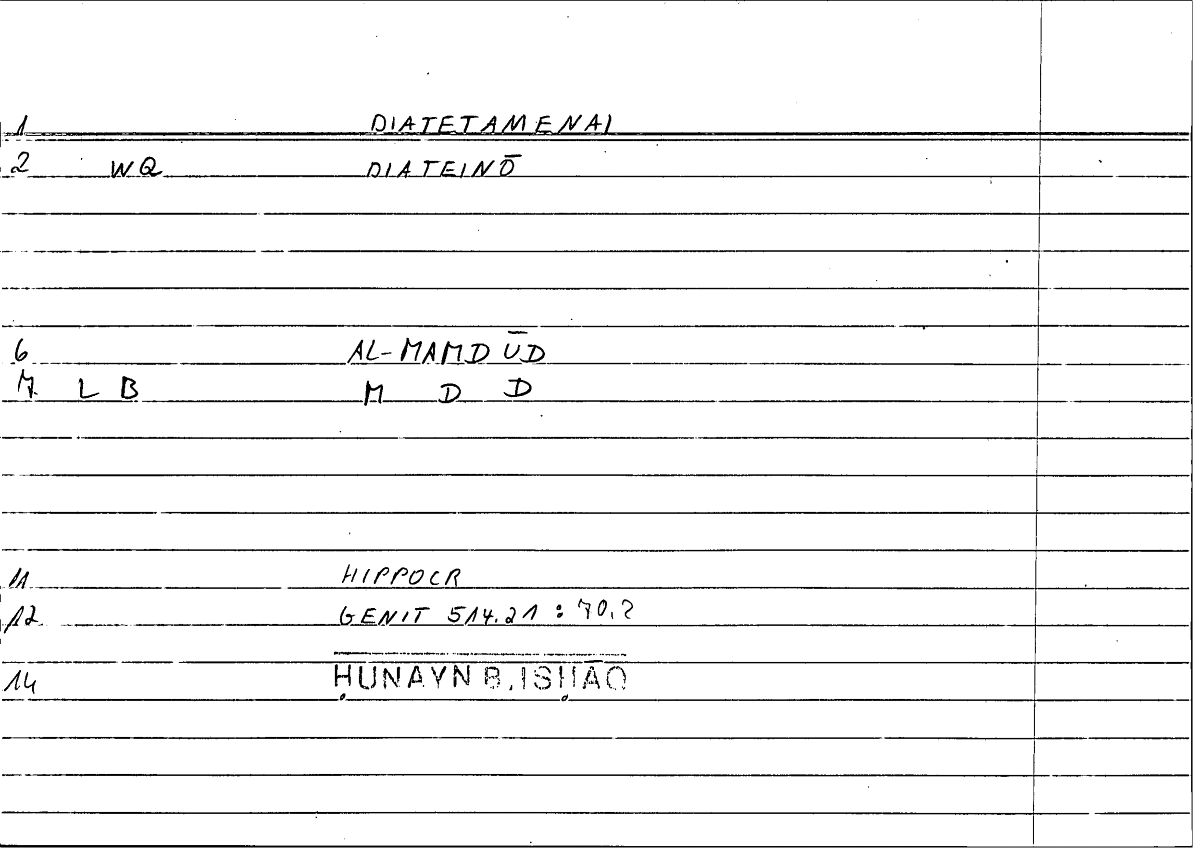 1 DIATETAMENAI
2 WQ DIATEINŌ
6 AL-MAMDŪD
7 L B M D D
11 HIPPOCR
12 GENIT 514.21 : 70,2
14 ḤUNAYN B. ISḤĀQ